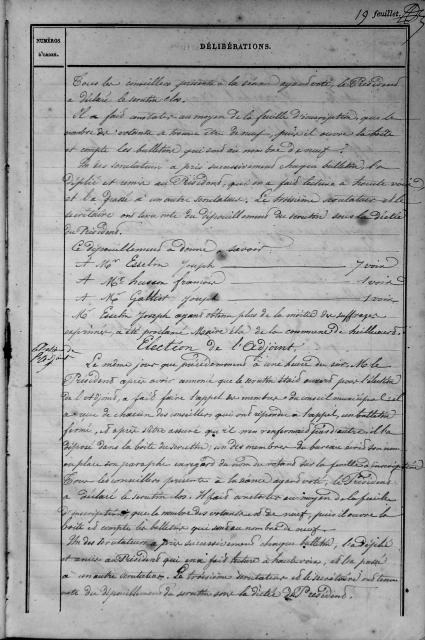 19 feuillet.
NUMÉROS
D'ORDRE.
DÉLIBÉRATIONS.
Tous les conseillers présents à la séance ayant voté, le Président
a déclaré le scrutin clos.
Il a fait constater au moyen de la feuille d'inscription, que le
nombre de votants a trouvé être de neuf, puis il ouvre la boîte
et compte les bulletins qui sont au nombre de neuf.
Un des scrutateurs a pris successivement chaque bulletin, l'a
déplié et remis au Président, qui en a fait lecture à haute voix
et l'a passé à un autre scrutateur. Le troisième scrutateur et le
secrétaire ont tenu note du dépouillement du scrutin sous la dictée
du Président.
Ce dépouillement a donné savoir:
A Mr Joseph 7 voix
A Mr françois 1 voix
A Mr Joseph 1 voix
Mr Joseph ayant obtenu plus de la moitié des suffrages
exprimés, a été proclamé Maire de la commune de
Election de l'Adjoint
Le même jour que précédemment à une heure du soir, M. le
Président après avoir annoncé que le scrutin était ouvert pour l'élection
de l'Adjoint, a fait faire l'appel des membres du conseil municipal. Il
a reçu de chacun des conseillers qui ont répondu à l'appel, un bulletin
fermé, et après s'être assuré qu'il n'en renfermait pas d'autre il l'a
déposé dans la boîte du scrutin; un des membres du bureau
en place son paraphe en regard du nom du votant sur la feuille d'inscription
Tous les conseillers présents à la séance ayant voté, le Président
a déclaré le scrutin clos. Il fait constater au moyen de la feuille
d'inscription que le nombre des votants est de neuf, puis il ouvre la
boîte et compte les bulletins qui sont au nombre de neuf.
Un des scrutateurs a pris successivement chaque bulletin, l'a déplié
et remis au Président qui en a fait lecture à haute voix, et l'a passé
à un autre scrutateur. Le troisième scrutateur et le secrétaire ont tenu
note du dépouillement du scrutin sous la dictée du Président.